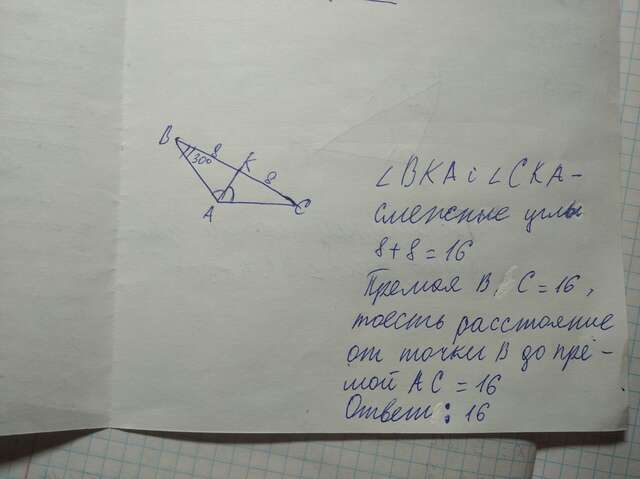 B
30°
8
K
8
A
C
∠BKA i ∠CKA-
смежные углы
8+8=16
Прямая B, C=16,
тоесть расстояние
от точки B до пря-
мой AC = 16
Ответ: 16